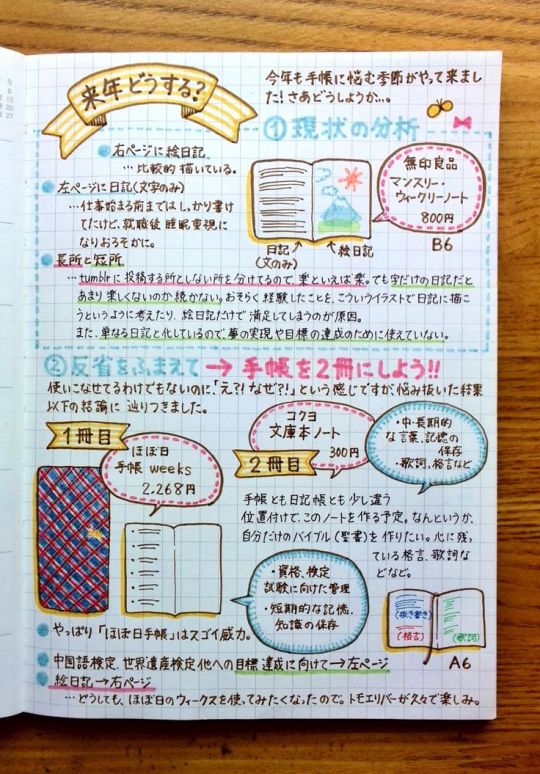 来年どうする?
今年も手帳に悩む季節がやって来まし
た!さあどうしようか…。
①現状の分析
右ページに絵日記
…比較的描いている。
左ページに日記(文字のみ)
…仕事始まる前まではしっかり書け
てたけど、就職後睡眠重視に
なりおろそかに。
無印良品
マンスリー・
ウィークリーノート
800円
B6
日記
(文のみ)
絵日記
長所と短所
…tumblrに投稿する所としない所を分けてるので、楽といえば楽。でも字だけの日記だと
あまり楽しくないのか続かない。おそらく経験したことを、こういうイラストで日記に描こ
うというように考えたり、絵日記だけで満足してしまうのが原因。
また、単なる日記と化しているので、夢の実現や目標の達成のために使えていない。
②反省をふまえて→手帳を2冊にしよう!!
使いこなせてるわけでもないのに、「え?!なぜ?!」という感じですが、悩み抜いた結果
以下の結論に辿りつきました。
1冊目
ほぼ日
手帳 weeks
2,268円
2冊目
コクヨ
文庫本ノート
300円
・中・長期的
な言葉、記憶の
保存
・歌詞、格言など
手帳とも日記帳とも少し違う
位置付けで、このノートを作る予定。なんというか、
自分だけのバイブル(聖書)を作りたい。心に残っ
ている格言、歌詞な
どなど。
・資格、検定
試験に向けた管理
・短期的な記憶、
知識の保存
(抜き書き)
(格言)
(歌詞)
A6
やっぱり「ほぼ日手帳」はスゴイ威力。
中国語検定、世界遺産検定他への目標達成に向けて→左ページ
絵日記→右ページ
…どうしても、ほぼ日のウィークスを使ってみたくなったので。トモエリバーが久々で楽しみ。
5
6
13
20
27